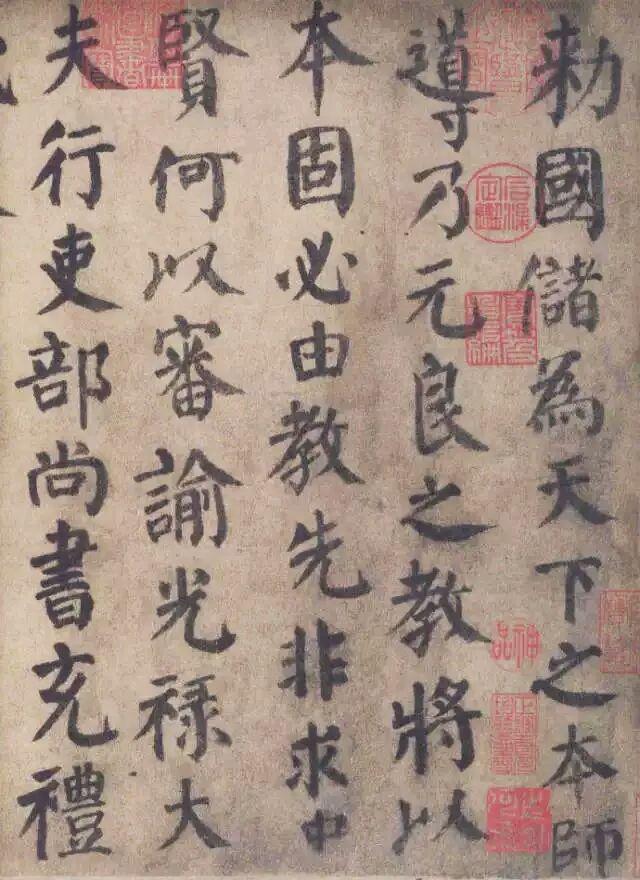 勅國儲為天下之本師
導乃元良之教將以
本固必由教先非求中
賢何以審諭光祿大
夫行吏部尚書充禮
神品